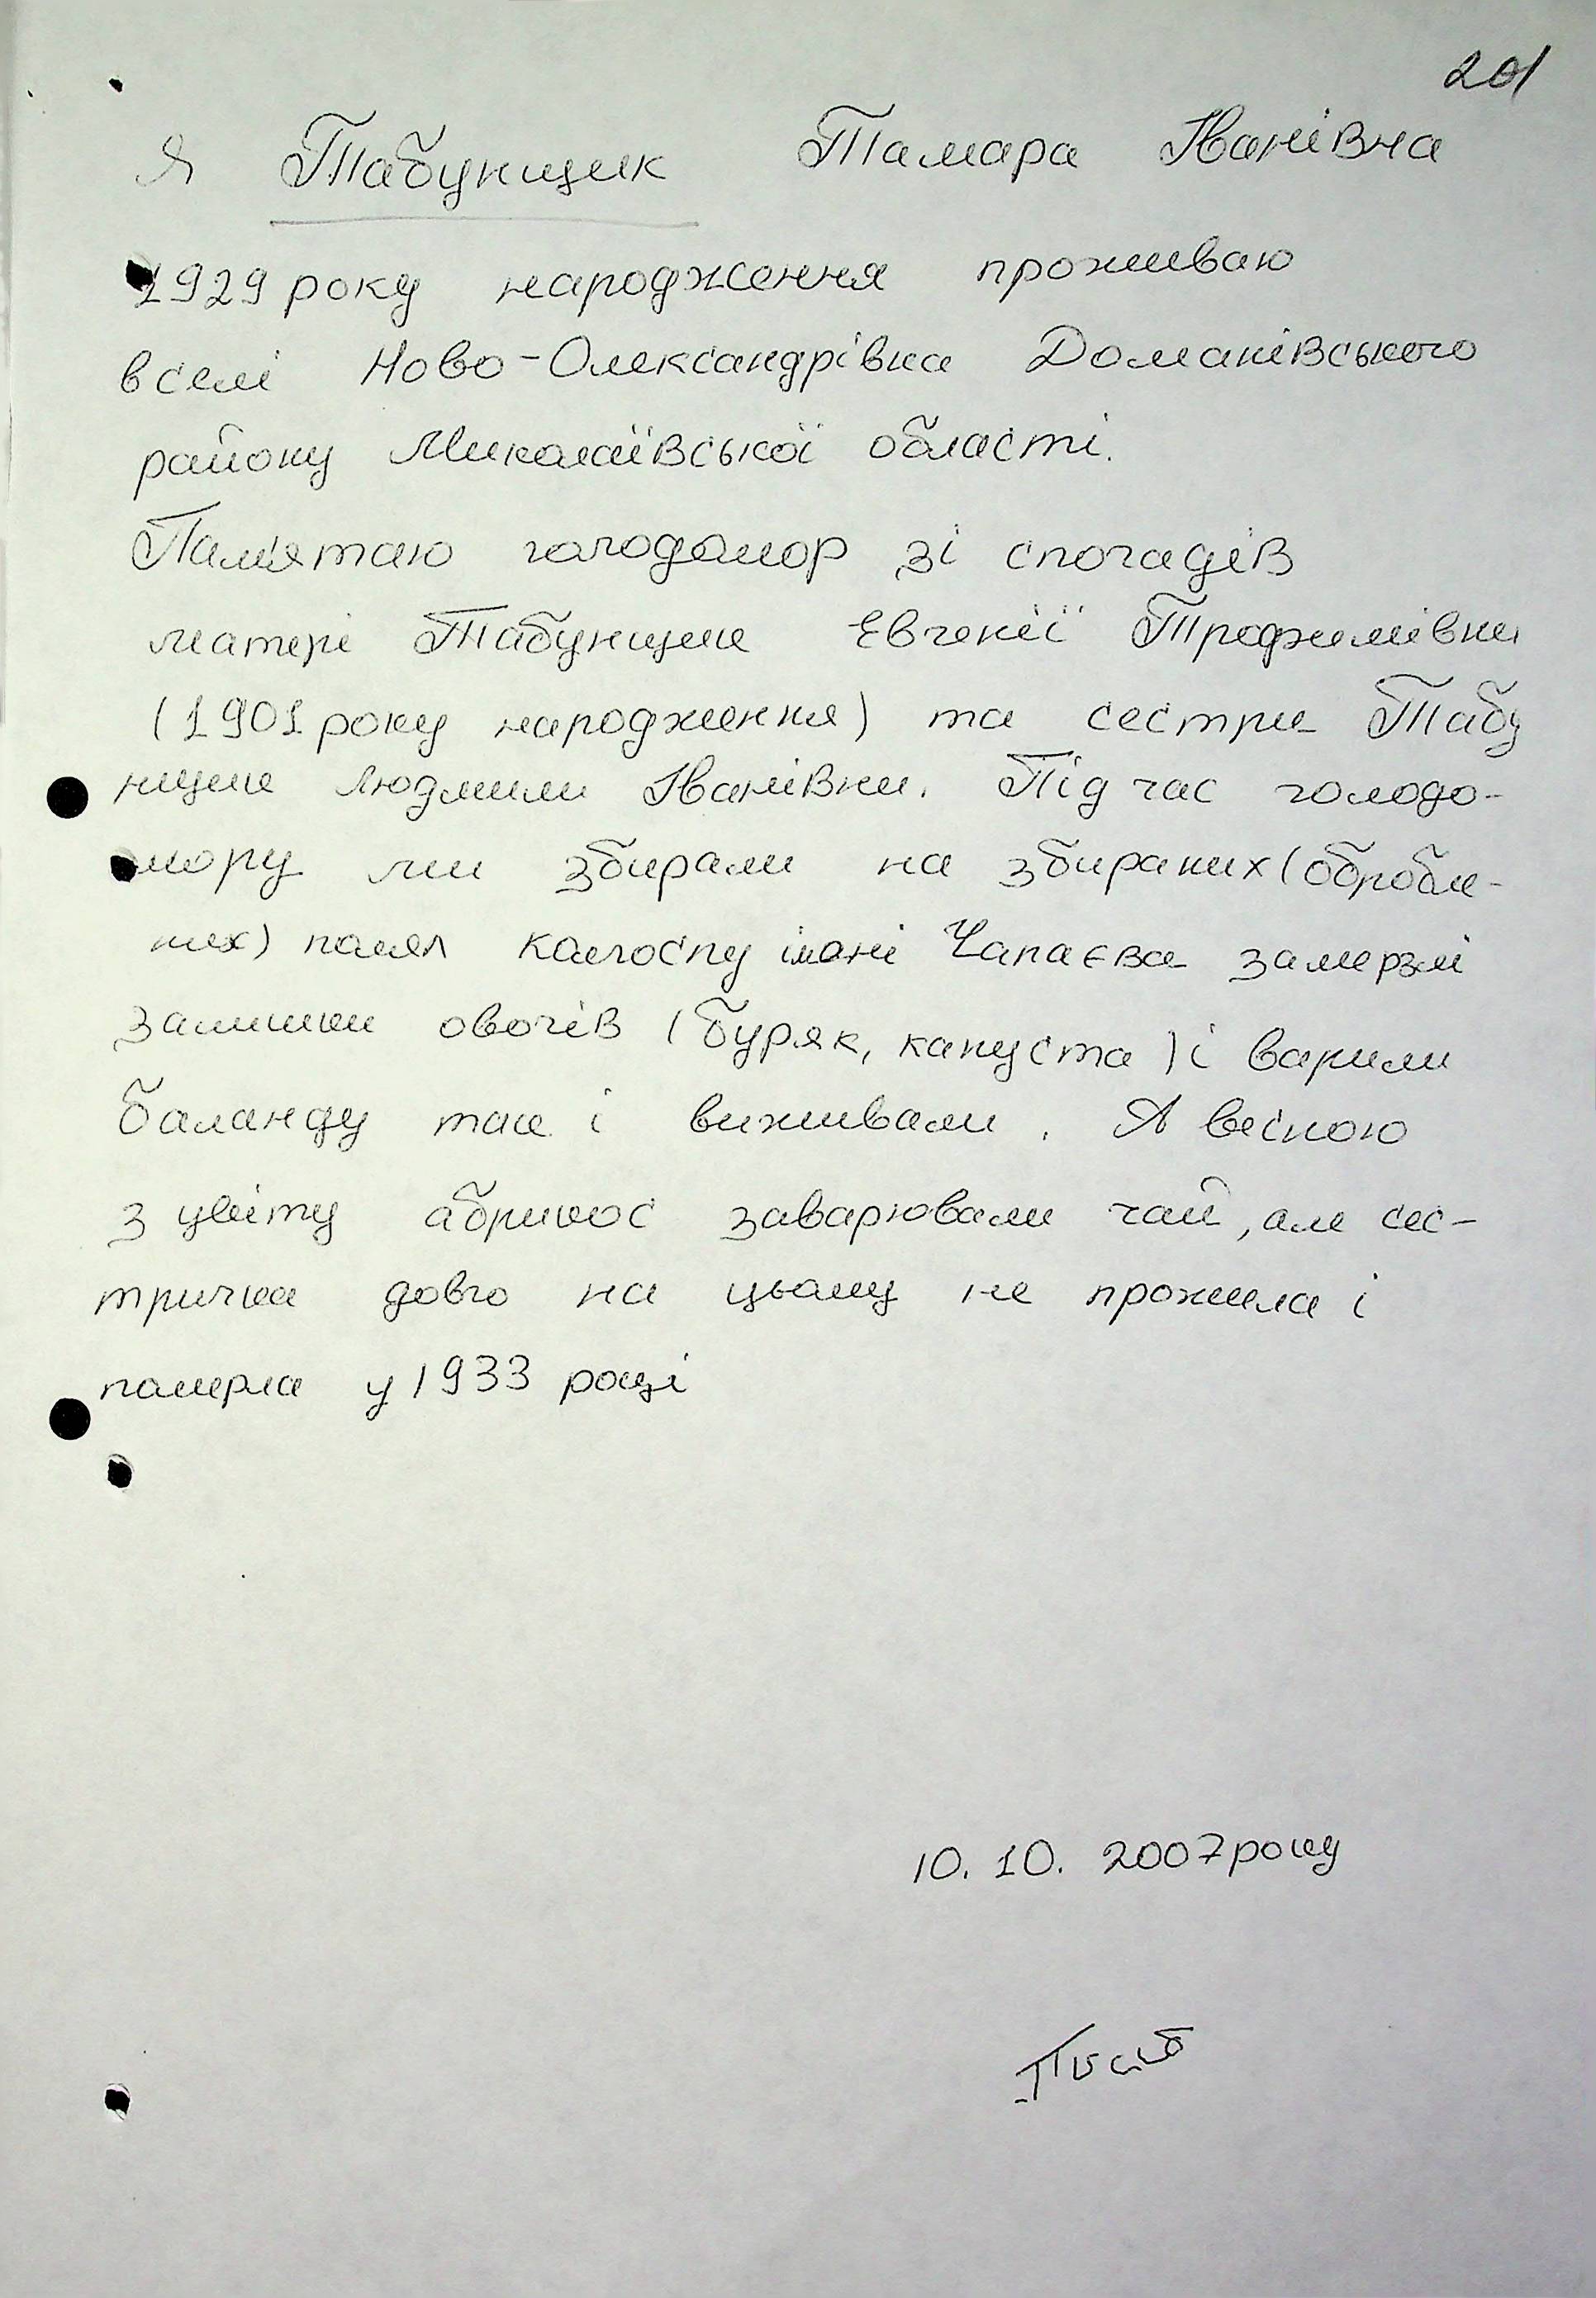 201
Я Табунщик Тамара Іванівна
1929 року народження проживаю
в селі Ново-Олександрівка Доманівського
району Миколаївської області.
Пам'ятаю голодомор зі спогадів
матері Табунщик Євгенії Трофимівни
(1901 року народження) та сестри Табу
нщик Людмили Іванівни. Під час голодо-
мору ми збирали на збираних (оброблe-
них) полях колгоспу імені Чапаєва замерзлі
залишки овочів (буряк, капуста) і варили
баланду так і виживали. А весною
з цвіту абрикос заварювали чай, але сес-
тричка довго на цьому не прожила і
померла у 1933 році
10.10.2007 року